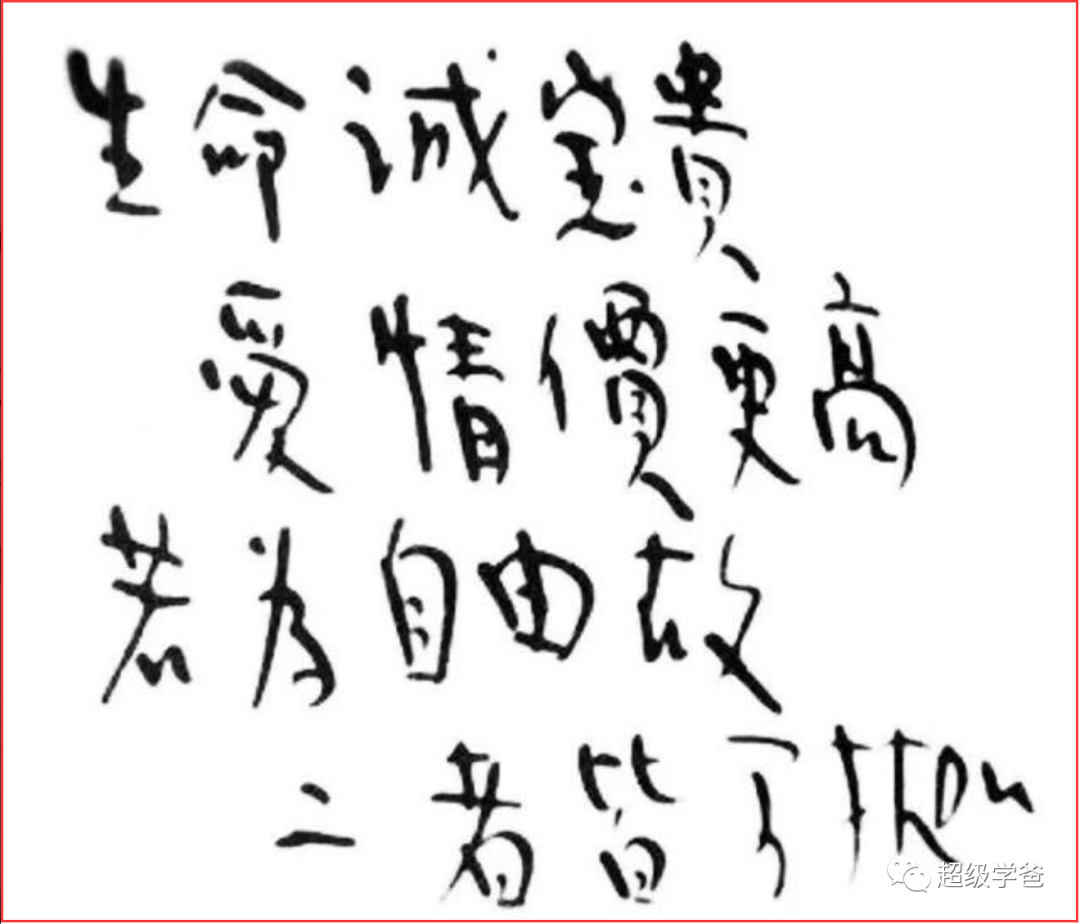 生命诚宝貴
爱情價更高
若为自由故
二者皆可抛
超级学爸